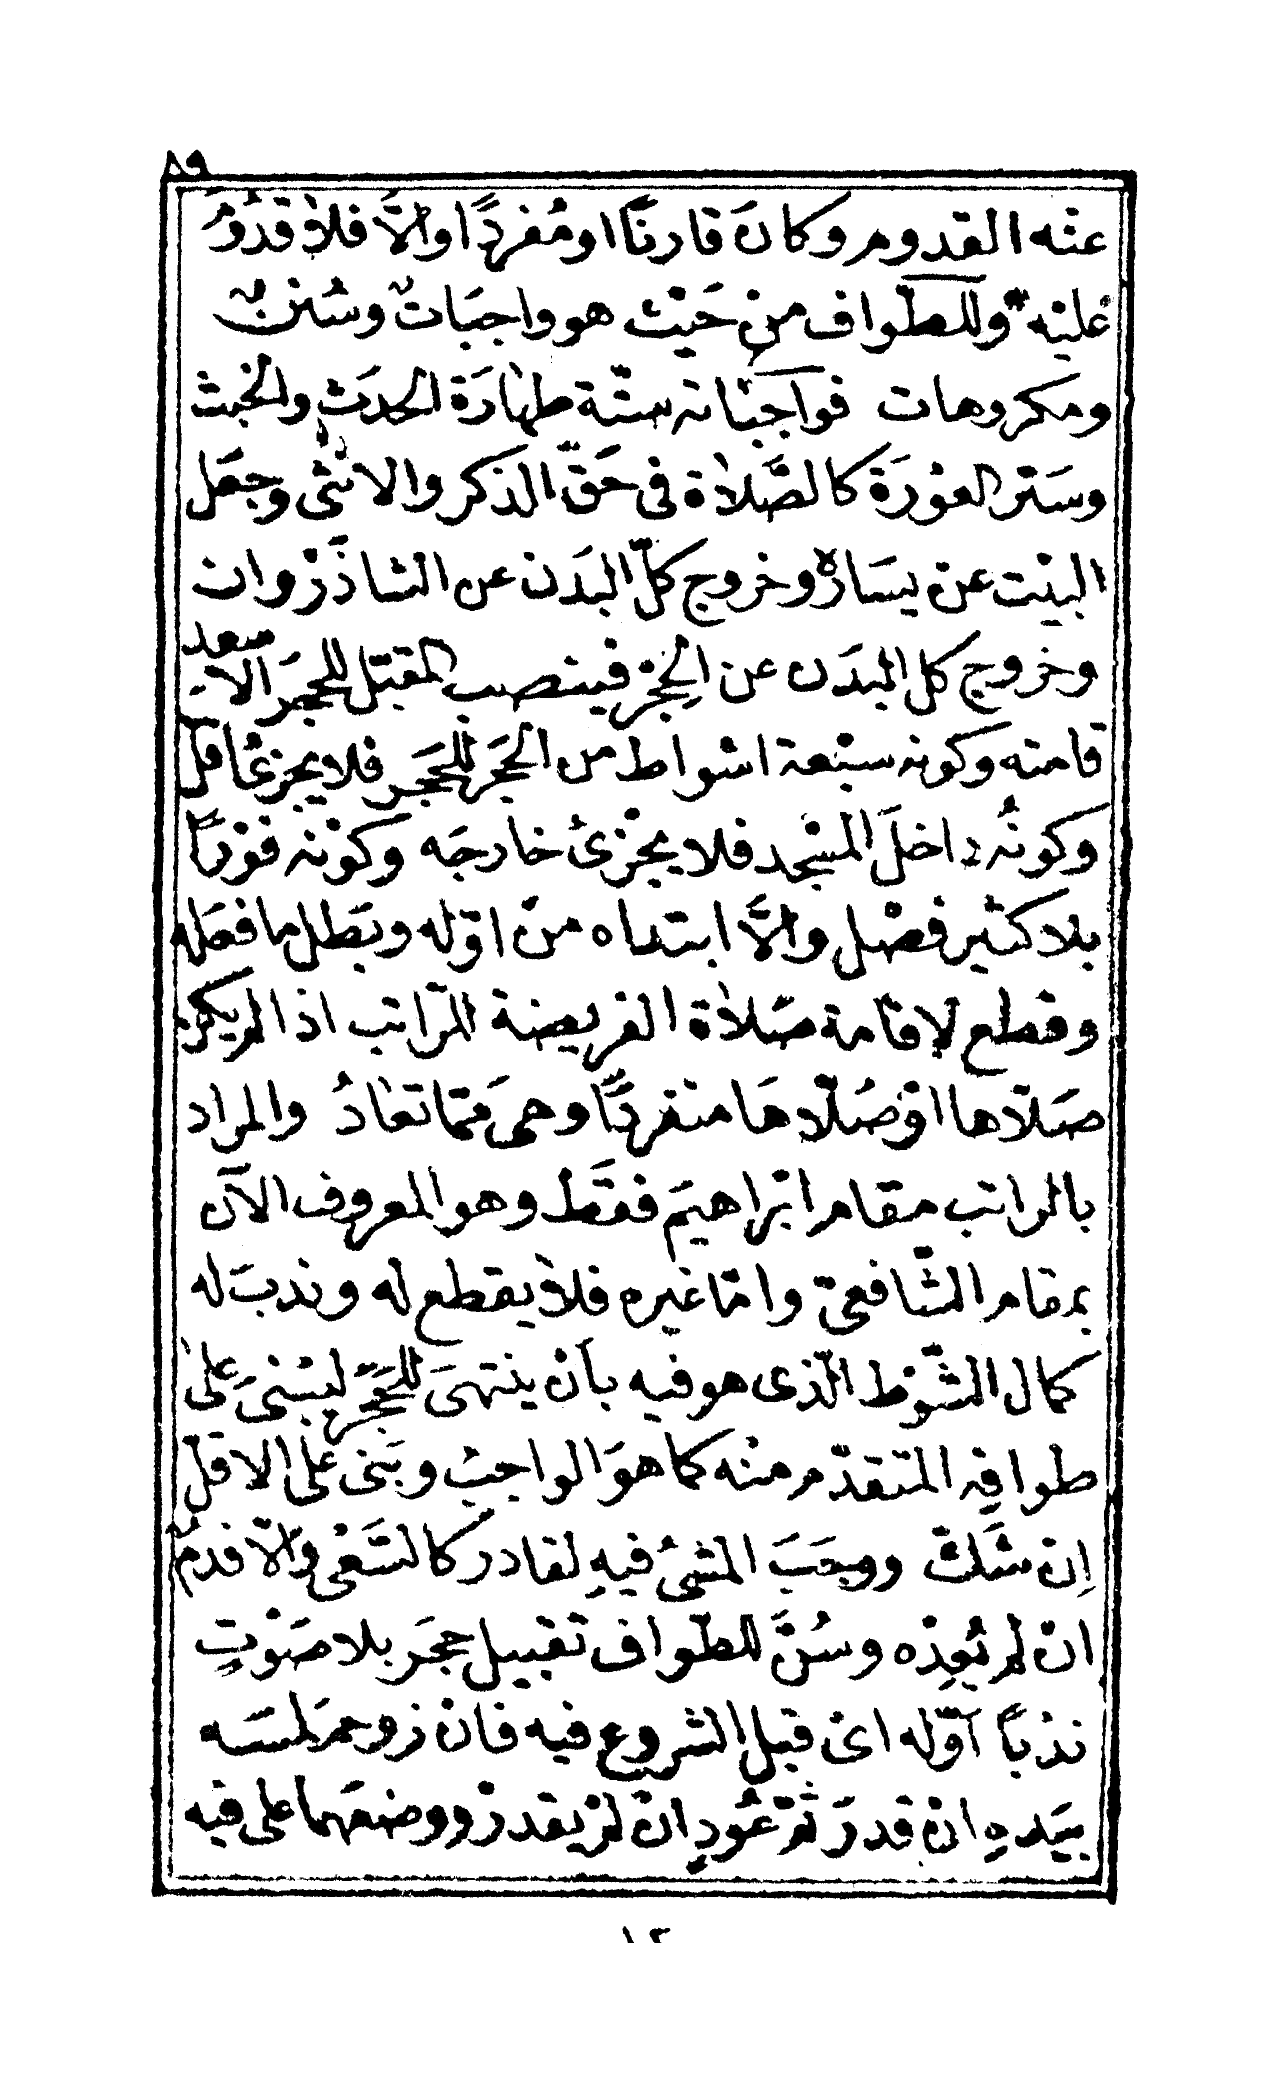 ٨٩
عنْه القدوم وكانَ قارنًا او مُفردًا والَّا فلاٰ قدُومُ
عليْه وللطّواف منْ حَيْث هو واجبَات وسُننٌ
ومكروهات فواجباته ستّة طهٰارَة الحدَث والخبث
وستر العوْرَة كالصَّلاٰة فى حَقّ الذكر والانثٰى وجعَل
البيْت عنْ يسَارهٰ وخروج كلّ البدَن عن الشاذَرْوان
وخروج كل البدَن عن الحِجْر فينصب المقبّل للحجَر الاسعد
قامته وكونه سبْعة اشواط من الحَجَر للحَجَر فلا يجزئ اقلّ
وكونُه داخلَ المسْجد فلا يجْزئُ خارجَه وكوْنه فوْرًا
بلا كثير فصْل والَّا ابتداه منْ اوّله وبَطل ما فعَله
وقطع لإقامة صَلاٰة الفريضة الرّاتب اذا لم يكن
صَلّاها اوْ صَلّاها منفردًا وهىَ ممّا تعٰادُ والمراد
بالراتب مقام ابْراهيمَ فقَطْ وهو المعروف الآن
بمقام الشّافعىّ وامّا غيره فلاٰ يقطع له وندبَ له
كمال الشّوْط الّذى هو فيه بأنْ ينتهىَ للحَجَر ليبْنىَ علىٰ
طوافِه المتقدّم منْه كما هوَ الواجبُ وبَنى على الاقلّ
إنْ شَكّ ووجَبَ المشىُ فيهِ لقادر كالسَّعْى والّا فدمٌ
انْ لم يُعِدْه وسُنَّ للطّواف تقبيل حجَر بلا صَوْتٍ
ندْبًا أوّله اىْ قبل الشروع فيه فانْ زوحمَ لمسَه
بيَدهِ انْ قدرَ ثمّ عُودٍ انْ لمْ يقدرْ ووضعَهما على فيه
١٢